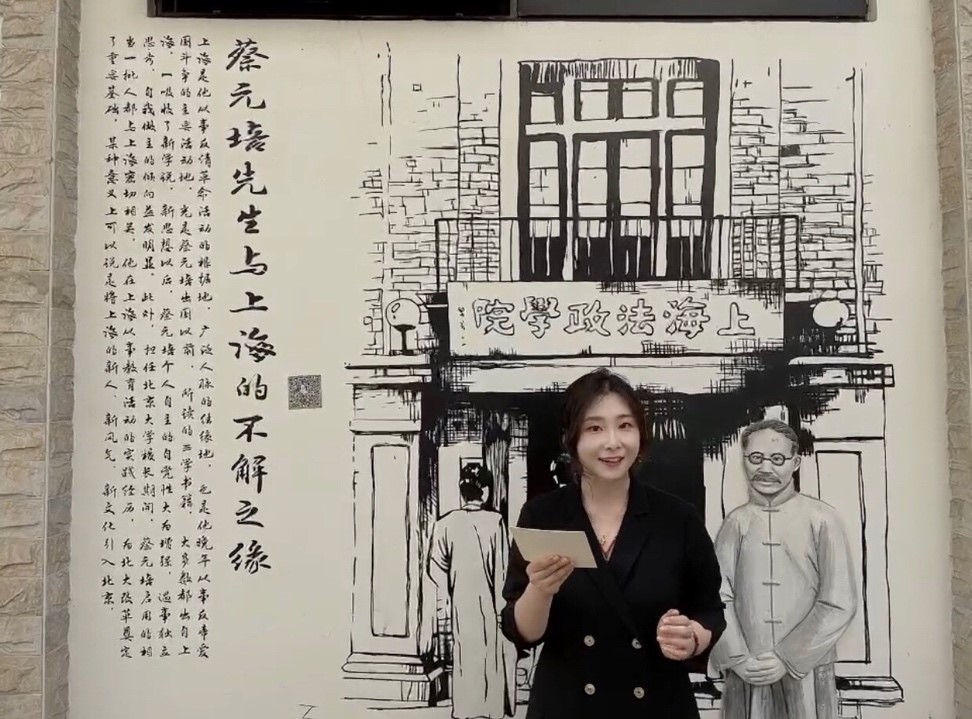 蔡元培先生与上海的不解之缘
上海是他从事反清革命活动的根据地，广泛人脉的结缘地，也是他晚年从事反帝爱
国斗争的主要活动地。光是蔡元培出国以前，所读的西学书籍，大多数都出自上
海，一吸收了新学说、新思想以后，蔡元培个人自主的自觉性大为增强，遇事独立
思考，自我做主的倾向益发明显。此外，担任北京大学校长期间，蔡元培启用的相
当一批人都与上海密切相关，他在上海从事教育活动的实践经历，为北大改革奠定
了重要基础，某种意义上可以说是将上海的新人、新风气、新文化引入北京。
上海法政學院